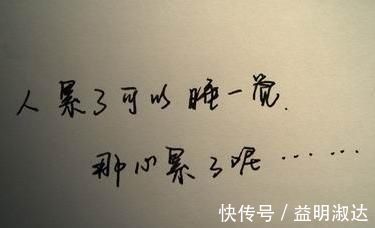 人累了可以睡一觉.
那心累了呢……
快传号／益明淑达